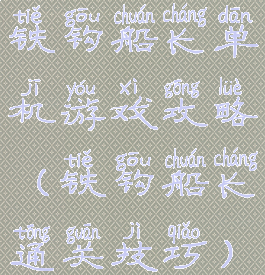 tiě gōu chuán cháng dān
铁钩船长单
jī yóu xì gōng lüè
机游戏攻略
tiě gōu chuán cháng
（铁钩船长
tōng guān jì qiǎo
通关技巧）